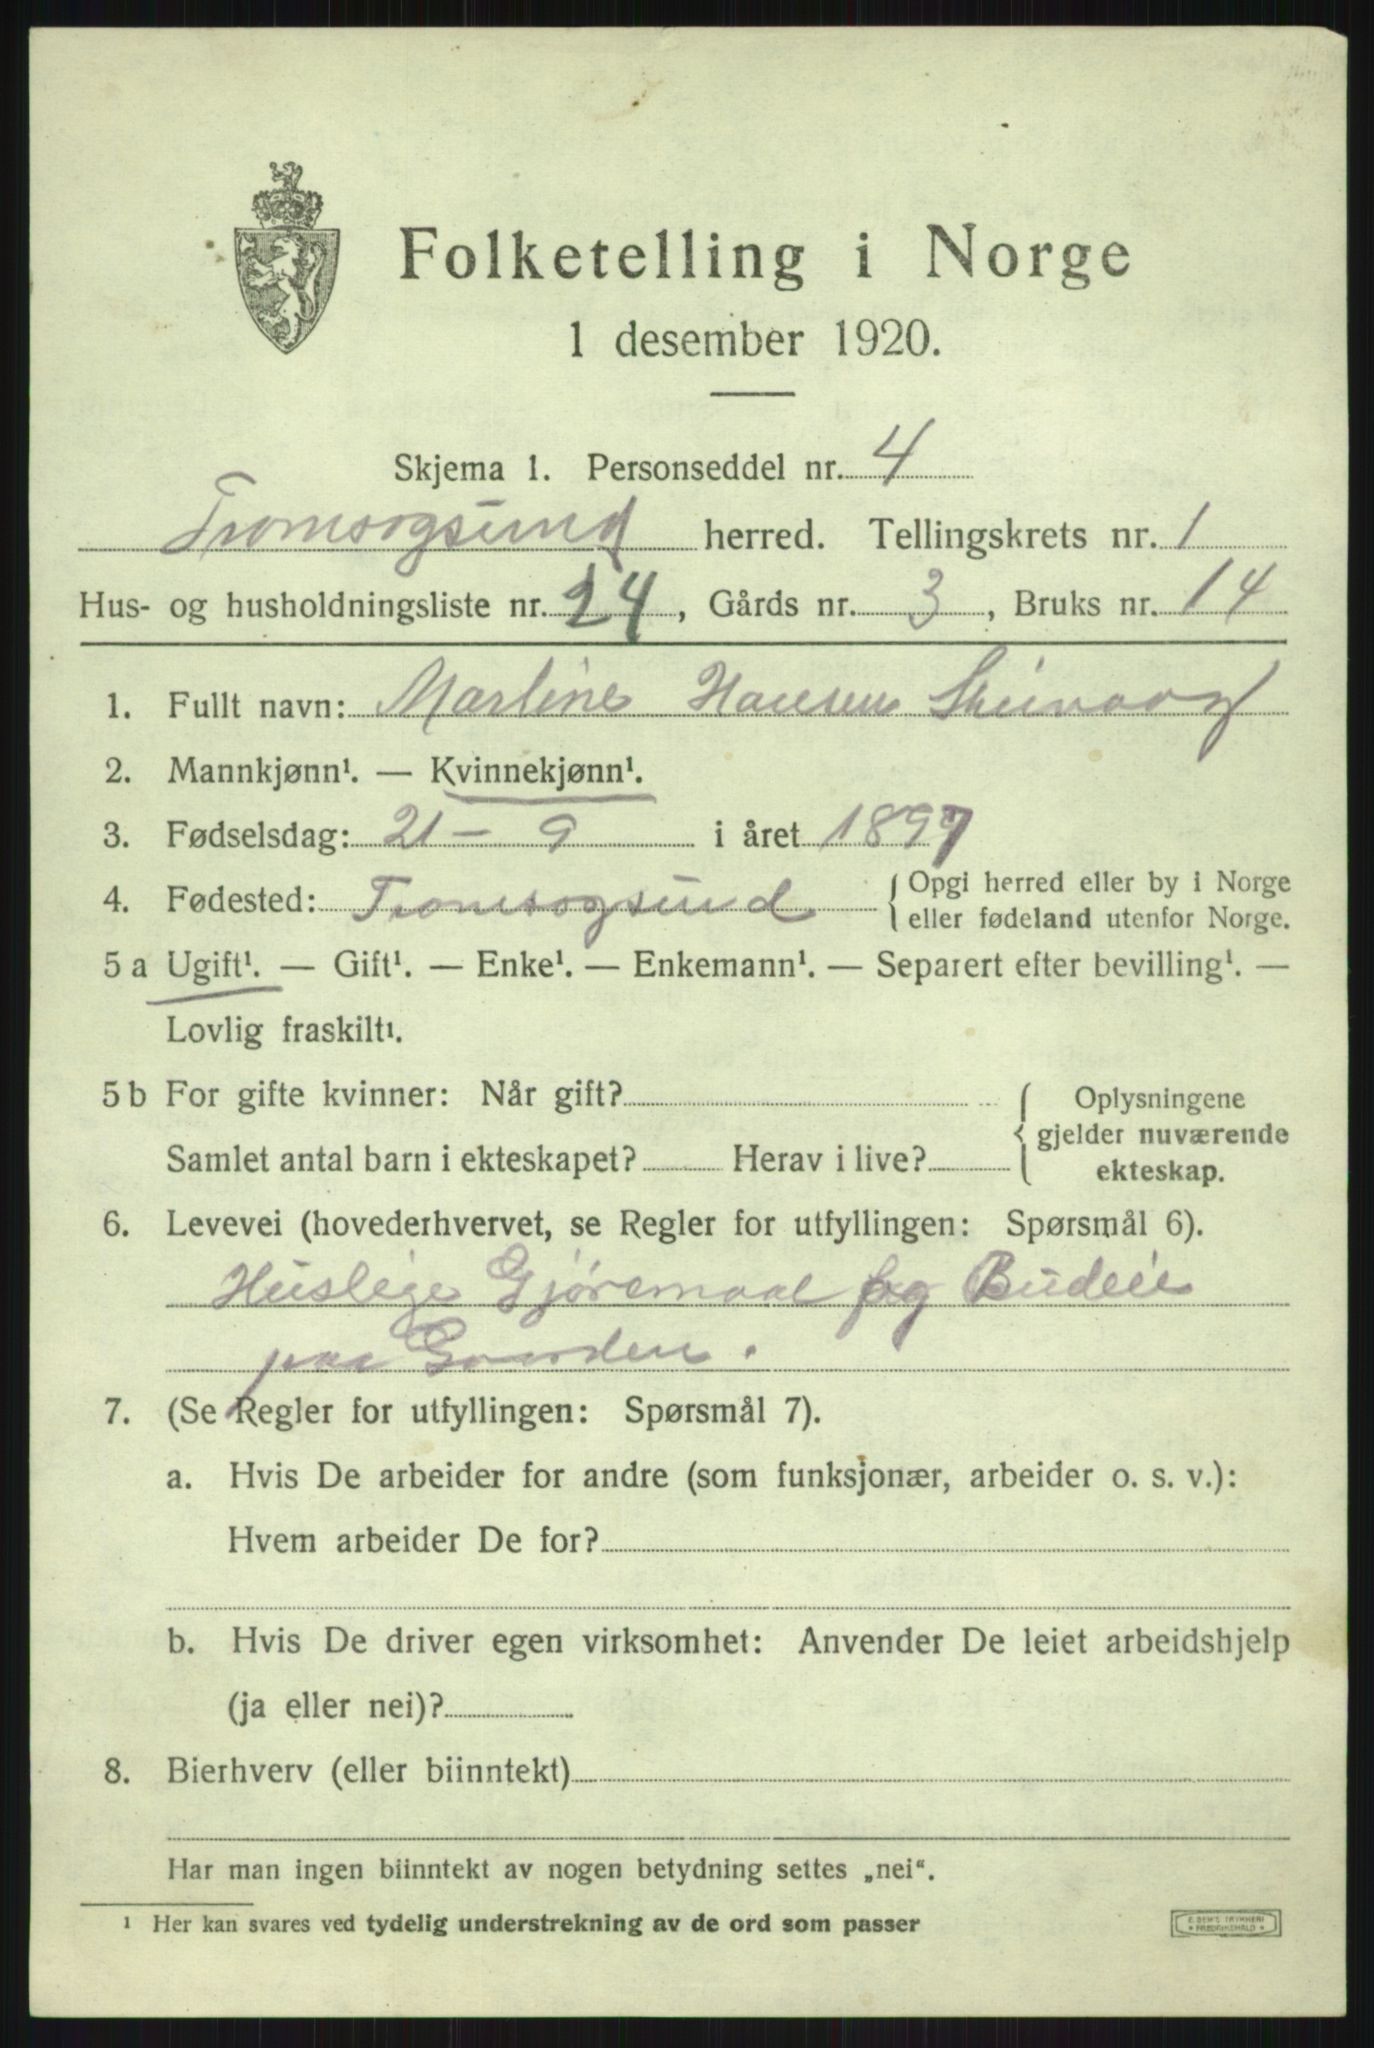 Folketelling i Norge
1 desember 1920.
Skjema 1. Personseddel nr. 4
Tromsøysund herred. Tellingskrets nr. 1
Hus- og husholdningsliste nr. 24, Gårds nr. 3, Bruks nr. 14
1. Fullt navn: Martine Hansen
2. Mannkjønn¹. — Kvinnekjønn¹.
3. Fødselsdag: 21 – 9 i året 1897
4. Fødested: Tromsøysund {Opgi herred eller by i Norge
eller fødeland utenfor Norge.
5 a Ugift¹. — Gift¹. — Enke¹. — Enkemann¹. — Separert efter bevilling¹. —
Lovlig fraskilt¹.
5 b For gifte kvinner: Når gift? { Oplysningene
gjelder nuværende
Samlet antal barn i ekteskapet? Herav i live? ekteskap.
6. Levevei (hovederhvervet, se Regler for utfyllingen: Spørsmål 6).
Huslige Gjøremaal og Budeie
paa Gaarden.
7. (Se Regler for utfyllingen: Spørsmål 7).
a. Hvis De arbeider for andre (som funksjonær, arbeider o. s. v.):
Hvem arbeider De for?
b. Hvis De driver egen virksomhet: Anvender De leiet arbeidshjelp
(ja eller nei)?
8. Bierhverv (eller biinntekt)
Har man ingen biinntekt av nogen betydning settes „nei“.
¹ Her kan svares ved tydelig understrekning av de ord som passer